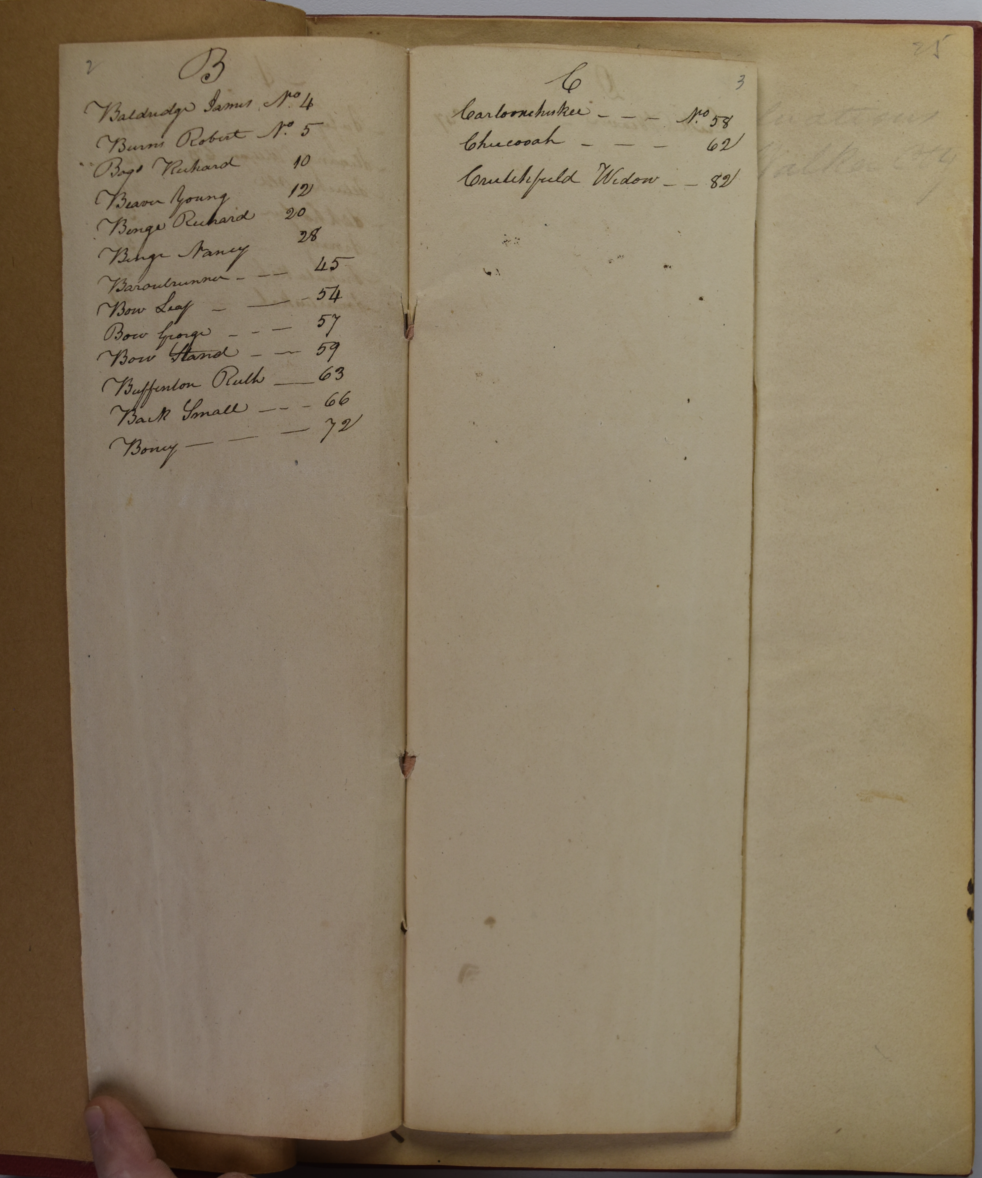 2
B
Baldridge James No. 4
Burns Robert No. 5
Bags Richard 10
Beaver Young 12
Benge Richard 20
Benge Nancy 28
45
Bow Leaf - — - 54
Bow George - - — 57
Bow Stand - — 59
Buffenton Ruth — 63
Back Small — - - 66
Boney — — — 72
3
C
Cartoonchukee - - - No. 58
Chucooah - - - 62
Crutchfield Widow - - 82
25
Valuations
Walker Cy